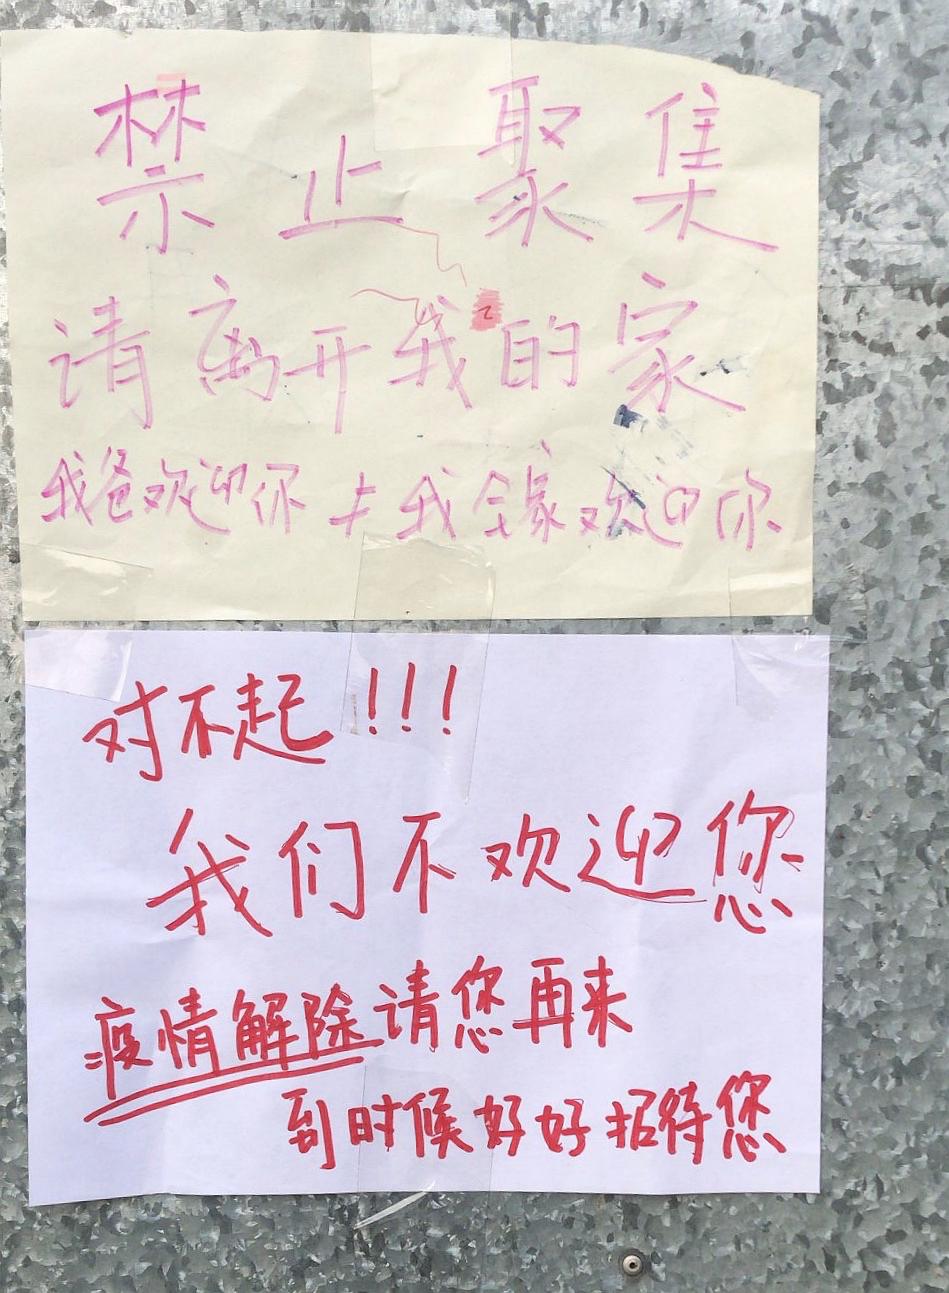 禁止聚集
请离开我的家
我爸欢迎你≠我全家欢迎你
对不起!!!
我们不欢迎您
疫情解除请您再来
到时候好好招待您